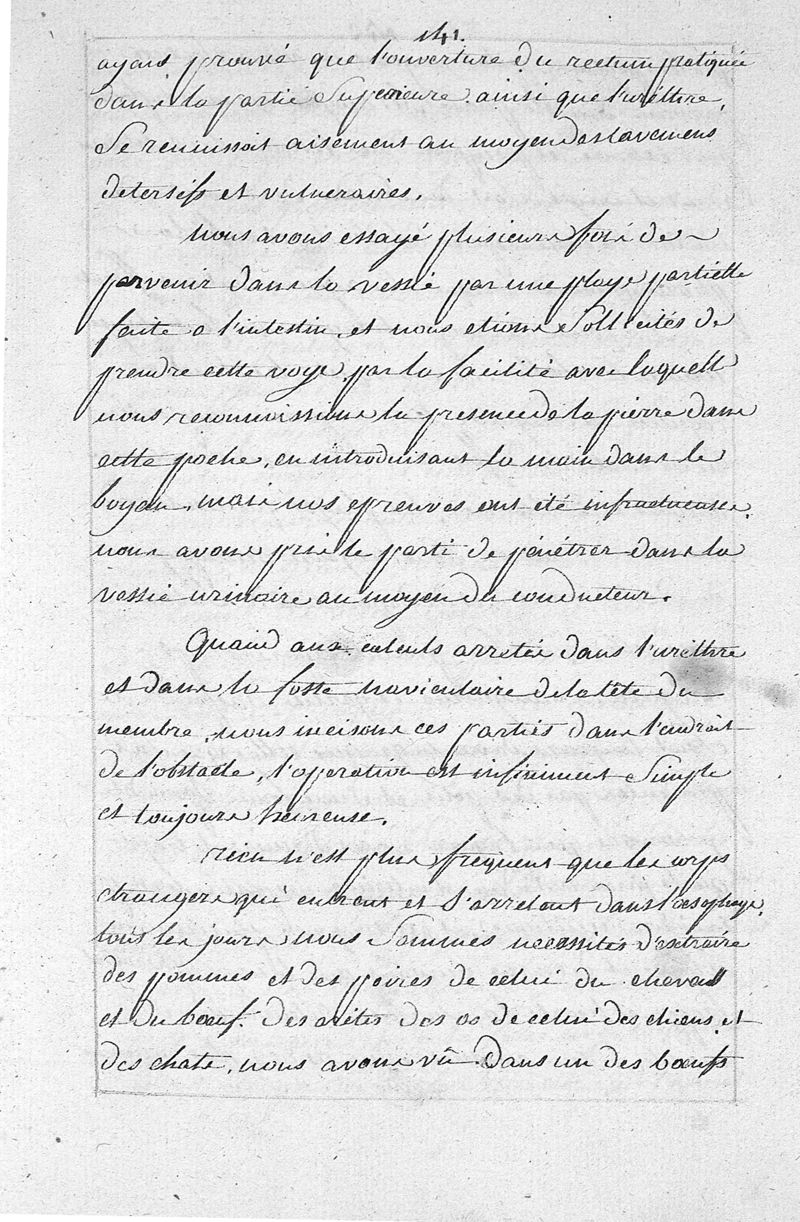 141.
ayant prouvé que l'ouverture du rectum pratiquée
dans la partie Superieure ainsi que l'uréthre,
Se reunissoit aisement au moyen des lavemens
detersifs et vulneraires.
Nous avons essayé plusieurs fois de
parvenir dans la vessie par une playe partielle
faite a l'intestin, et nous etions Sollicités de
prendre cette voye, par la facilité avec laquelle
nous reconnoissions la presence de la pierre dans
cette poche, en introduisant la main dans le
boyau, mais nos epreuves ont été infructueuses.
nous avons pris le parti de pénétrer dans la
vessie urinaire au moyen du conducteur.
Quand aux calculs arretés dans l'uréthre
et dans la fosse naviculaire de la tête du
membre, nous incisons ces parties dans l'endroit
de l'obstacle, l'operation est infiniment Simple
et toujours heureuse.
rien n'est plus frequent que les corps
etrangers qui entrent et S'arretent dans l'oesophage,
tous les jours nous Sommes necessités d'extraire
des pommes et des poires de celui du cheval
et du bœuf. des arêtes des os de celui des chiens, et
des chats, nous avons vû dans un des bœufs